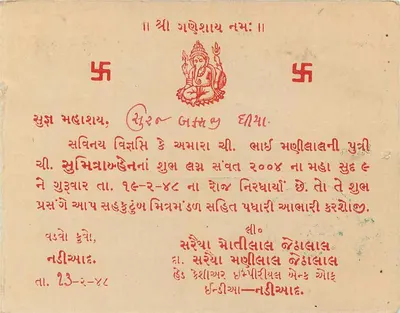 ॥ શ્રી ગણેશાય નમઃ ॥
સુજ્ઞ મહાશય, સુરજ
સવિનય વિજ્ઞપ્તિ કે અમારા ચી. ભાઈ મણીલાલની પુત્રી
ચી. સુમિત્રાબ્હેનનાં શુભ લગ્ન સંવત ૨૦૦૪ ના મહા સુદ ૯
ને ગુરૂવાર તા. ૧૯-૨-૪૮ ના રોજ નિરધાર્યાં છે. તો તે શુભ
પ્રસંગે આપ સહકુટુંબ મિત્રમંડળ સહિત પધારી આભારી કરશોજી.
વડવો કુવો,
નડીઆદ.
તા. 13-૨-૪૮
લી૦
સરૈયા મોતીલાલ જેઠાલાલ
દા. સરૈયા મણીલાલ જેઠાલાલ
હેડ કેશીઅર ઈમ્પીરીયલ બેન્ક ઓફ
ઈન્ડીઆ—નડીઆદ.